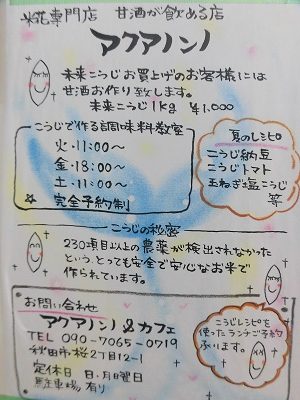 糀専門店 甘酒が飲める店
アクアノンノ
未来こうじお買上げのお客様には
甘酒お作り致します。
未来こうじ1kg ¥1,000
こうじで作る調味料教室
火・11:00〜
金・18:00〜
土・11:00〜
☆ 完全予約制
夏のレシピ
こうじ納豆
こうじトマト
玉ねぎ塩こうじ
等
こうじの秘密
230項目以上の農薬が検出されなかった
という、とっても安全で安心なお米で
作られています。
お問い合わせ
アクアノンノ&カフェ
TEL 090-7065-0719
秋田市桜2丁目12-1
定休日 日・月曜日
駐車場 有り
こうじレシピを
使ったランチご予約
承ります。